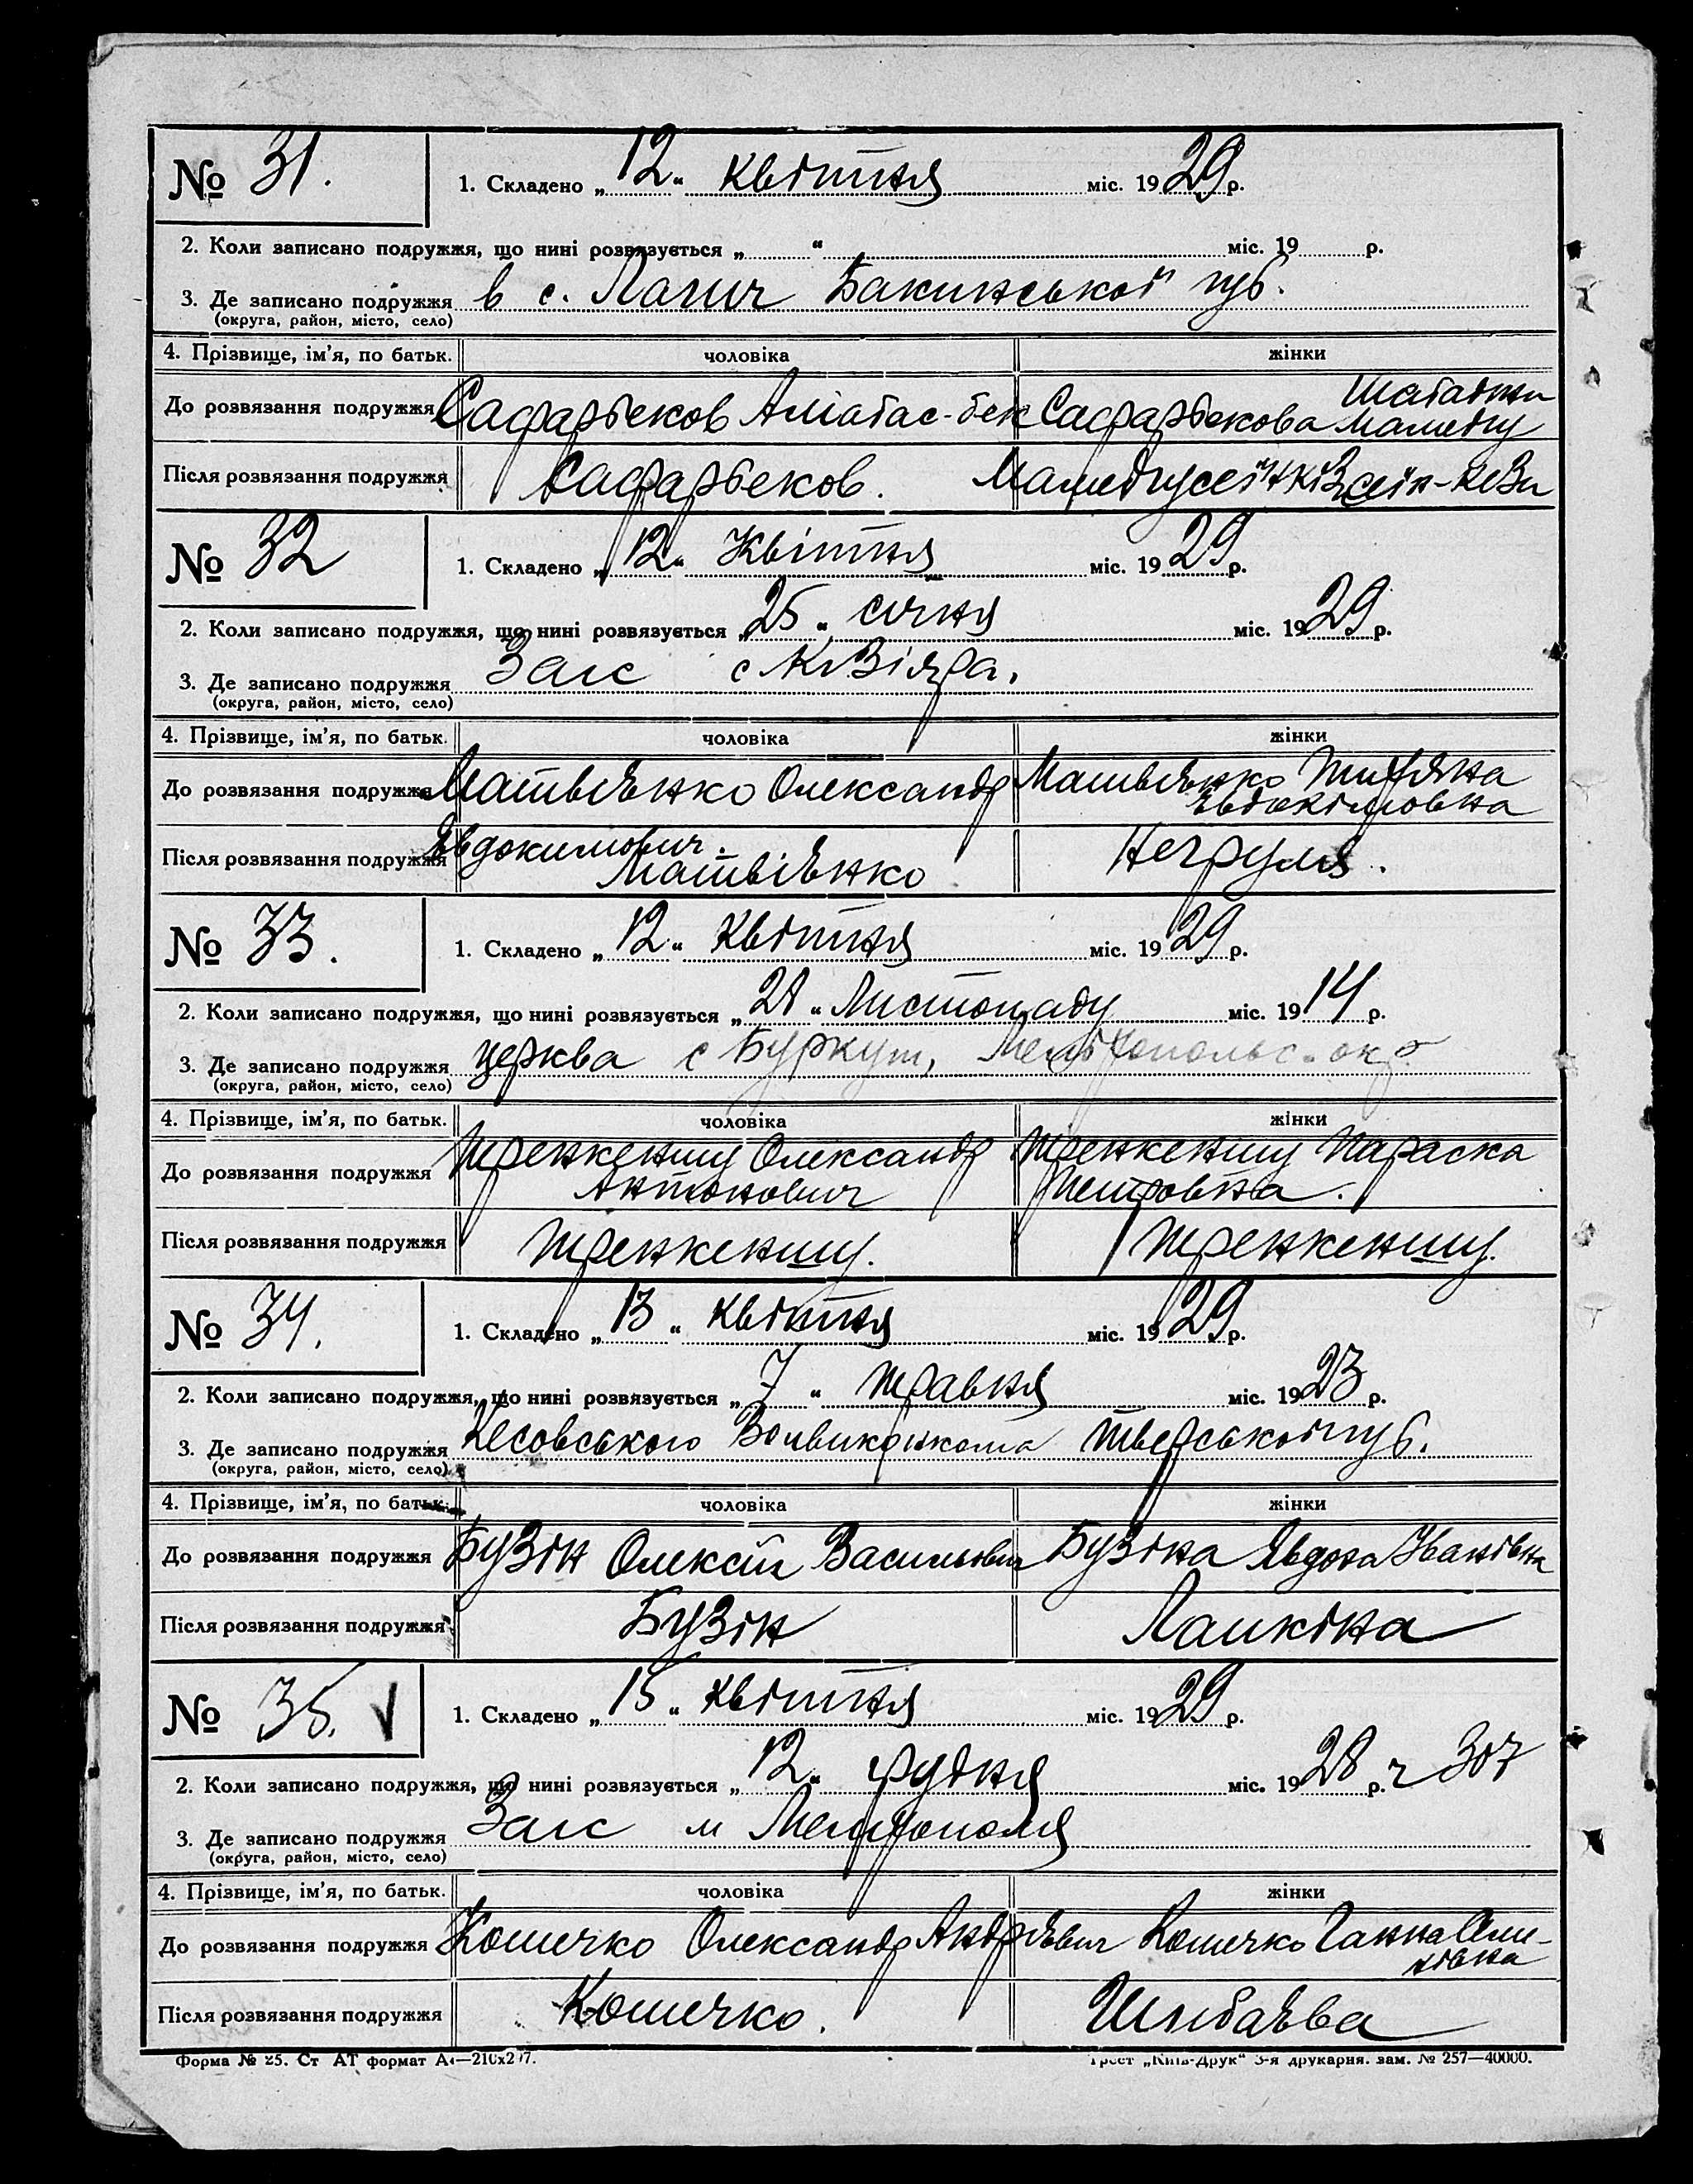 № 31. 1. Складено „12“ квітня міс. 1929 р.
2. Коли записано подружжя, що нині розвязується „ “ міс. 19 р.
3. Де записано подружжя в с. Лагич Бакинської губ.
(округа, район, місто, село)
4. Прізвище, ім’я, по батьк. чоловіка жінки
До розвязання подружжя Сафарбеков Аліабас-бек Сафарбекова
Після розвязання подружжя Сафарбеков.
№ 32 1. Складено „12“ Квітня міс. 1929 р.
2. Коли записано подружжя, що нині розвязується „25“ січня міс. 1929 р.
3. Де записано подружжя Загс с
(округа, район, місто, село)
4. Прізвище, ім’я, по батьк. чоловіка жінки
До розвязання подружжя Матвіенко Олександр Матвіенко
Евдокимович.
Після розвязання подружжя Матвіенко Негруля.
№ 33. 1. Складено „12“ Квітня міс. 1929 р.
2. Коли записано подружжя, що нині розвязується „28“ Листопаду міс. 1914 р.
3. Де записано подружжя церква с Буркут, Мелітопольс. окр
(округа, район, місто, село)
4. Прізвище, ім’я, по батьк. чоловіка жінки
До розвязання подружжя Тренкеншу Олександр Тренкеншу Параска
Антонович Петровна.
Після розвязання подружжя Тренкеншу. Тренкеншу.
№ 34. 1. Складено „13“ квітня міс. 1929 р.
2. Коли записано подружжя, що нині розвязується „7“ травня міс. 1923 р.
3. Де записано подружжя Кесовського Волвиконкома тверської губ.
(округа, район, місто, село)
4. Прізвище, ім’я, по батьк. чоловіка жінки
До розвязання подружжя Бузін Олексій Васильович Бузіна Явдоха Іванівна
Після розвязання подружжя Бузін Лапкіна
№ 35. 1. Складено „15“ квітня міс. 1929 р.
2. Коли записано подружжя, що нині розвязується „12“ грудня міс. 1928 р. ч 307
3. Де записано подружжя Загс м Мелітополя
(округа, район, місто, село)
4. Прізвище, ім’я, по батьк. чоловіка жінки
До розвязання подружжя Кошечко Олександр Андрієвич Кошечко Ганна
Після розвязання подружжя Кошечко. Шибаєва
Форма № 25. Ст АТ формат А4—210х297. Трест „Київ-Друк“ 3-я друкарня. зам. № 257—40000.